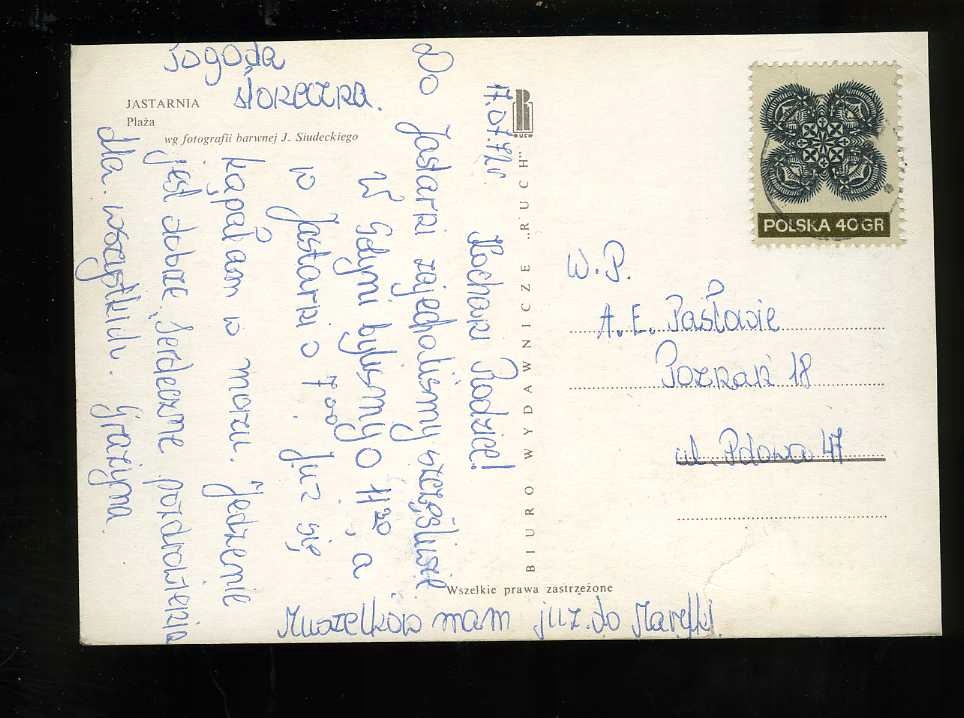 JASTARNIA
Plaża
wg fotografii barwnej J. Siudeckiego
17.07.72r.
Kochani Rodzice!
Do Jastarni zajechaliśmy szczęśliwie
W Gdyni byliśmy o 11 20, a
w Jastarni o 7 00. Już się
kąpałam w morzu. Jedzenie
jest dobre. Serdeczne pozdrowienia
dla wszystkich. Grażyna
Pogoda
słoneczna.
Muszelków mam już do
BIURO WYDAWNICZE „RUCH”
RUCH
Wszelkie prawa zastrzeżone
POLSKA 40 GR
W.P.
A. E. Pasławie
Poznań 18
ul. 47